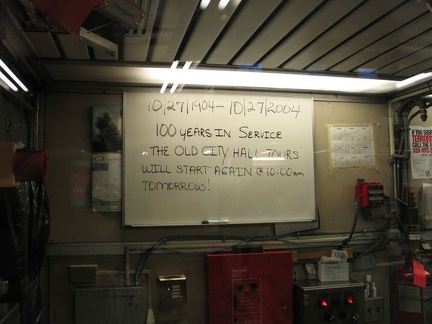 10/27/1904 - 10/27/2004
100 YEARS IN SERVICE
THE OLD CITY HALL TOURS
WILL START AGAIN @ 10:00am
TOMORROW!
IF YOU SUSPECT
TERRORISM
CALL THE